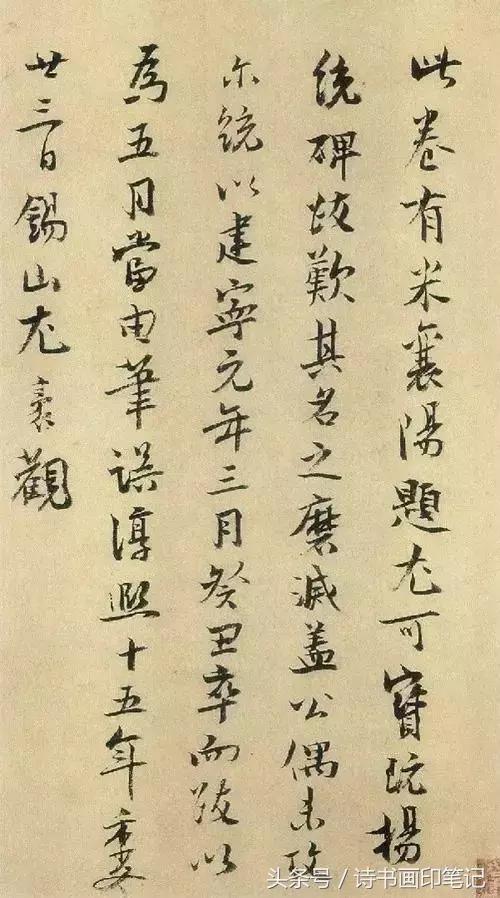 此卷有米襄陽題尤可寶玩楊
統碑跋歎其名之磨滅蓋公偶未攷
尔統以建寧元年三月癸丑卒而跋以
為五月當由筆誤淳熙十五年季夏
廿三日錫山尤袤觀
头条号 / 诗书画印笔记